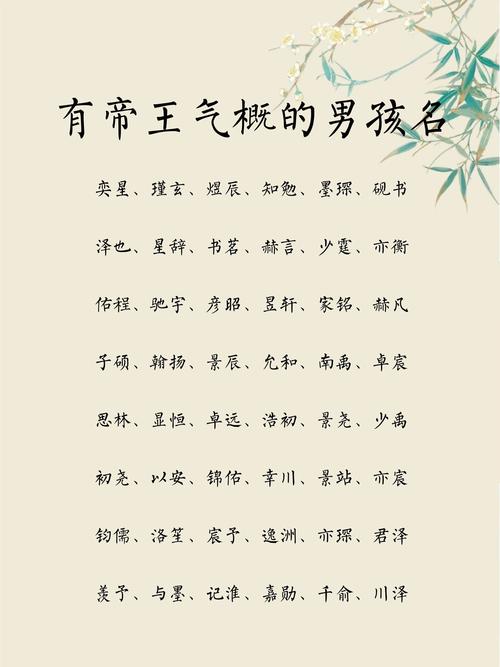 有帝王气概的男孩名
奕星、瑾玄、煜辰、知勉、墨琛、砚书
泽也、星辞、书茗、赫言、少霆、亦衡
佑程、驰宇、彦昭、昱轩、家铭、赫凡
子硕、翰扬、景辰、允和、南禹、卓宸
思林、显恒、卓远、浩初、景尧、少禹
初尧、以安、锦佑、幸川、景站、亦宸
钧儒、洛笙、宸予、逸洲、亦琛、君泽
羡予、与墨、记淮、嘉勋、千俞、川泽